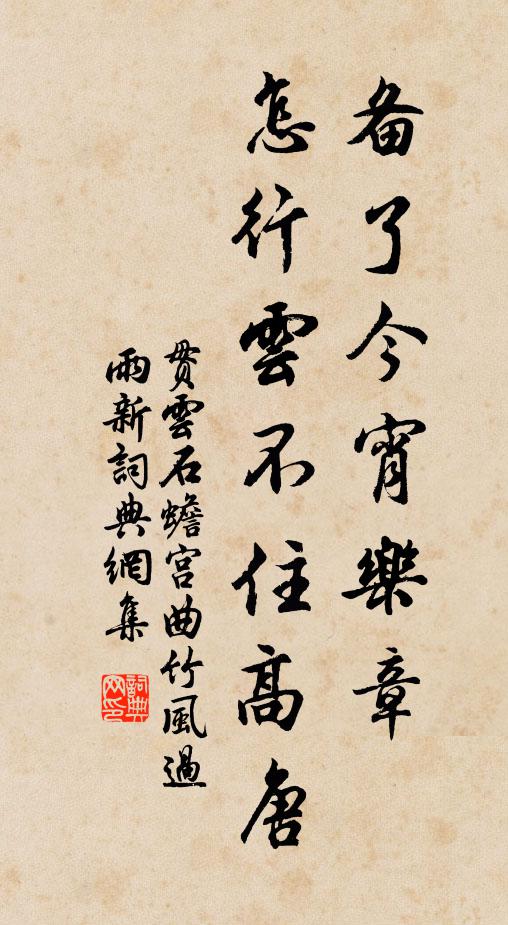 备了今宵樂章
怎行雲不住高唐
貫雲石蟾宮曲竹風過
雨新詞典網集
詞典網印